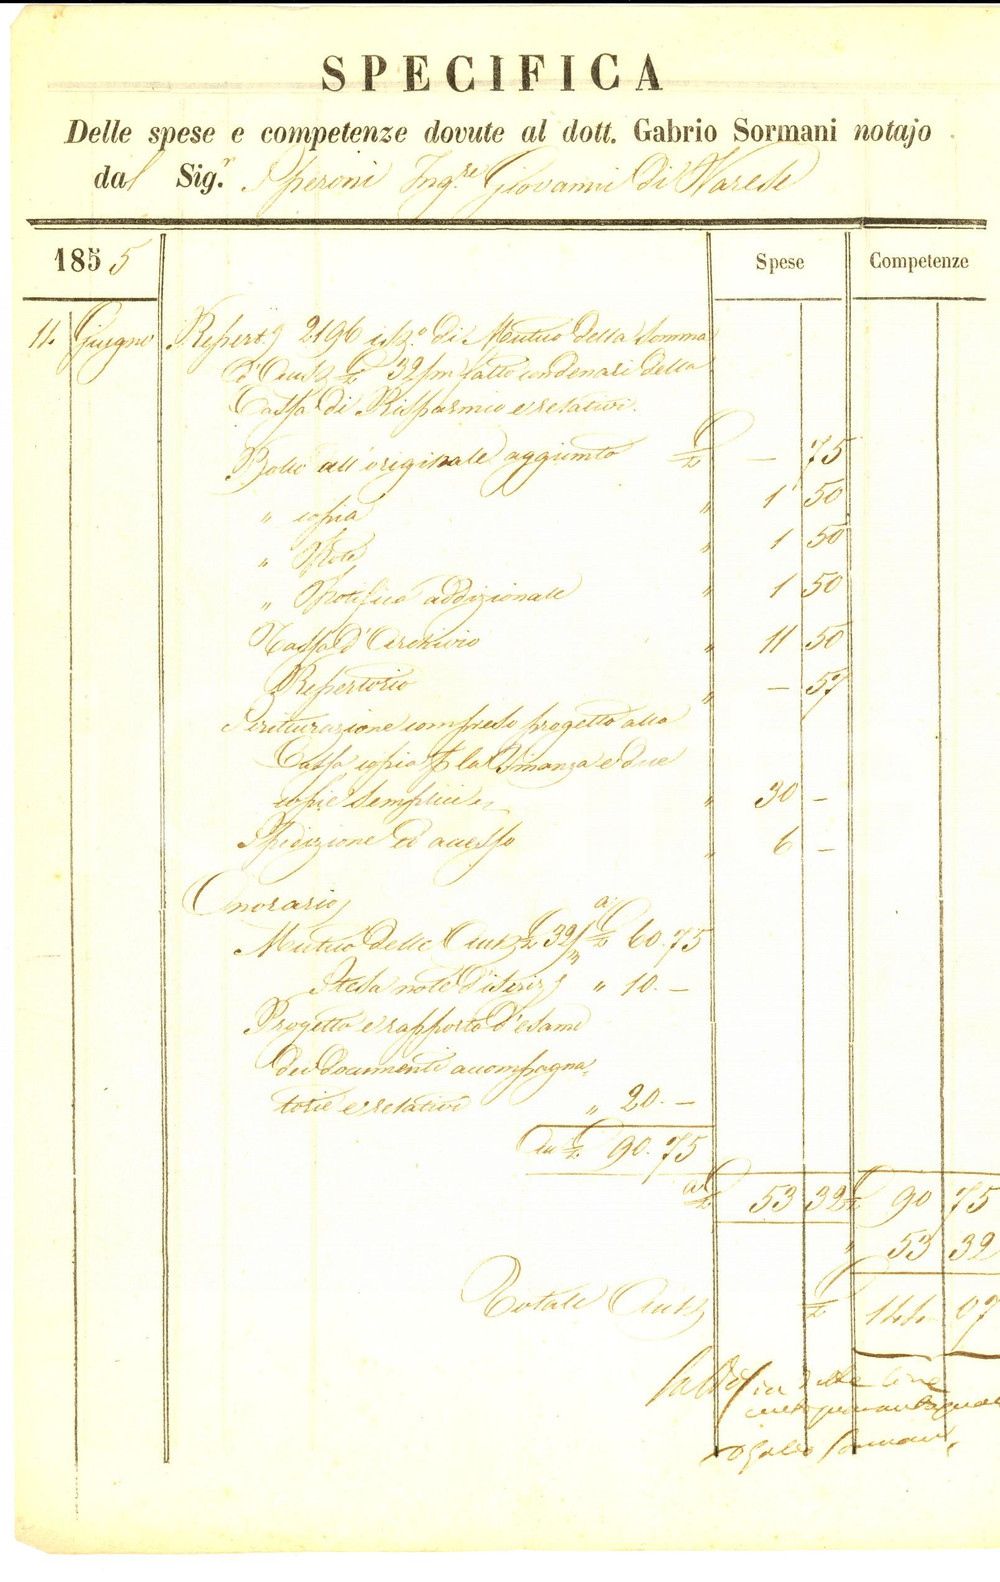 SPECIFICA
Delle spese e competenze dovute al dott. Gabrio Sormani notajo
dal Sig.r Speroni Ing.re Giovanni di Varese
1855 Spese Competenze
11. Giugno Repert.o 2196 di Mutuo della Somma
d'Aust. £ 32/m fatto con denari della
Cassa di Risparmio e relativi.
Bollo all'originale aggiunto £ — 75
" copia " 1 50
" Note " 1 50
" Notifica addizionale " 1 50
Tassa d'Archivio " 11 50
Repertorio " — 57
Scritturazione compreso progetto alla
Cassa copia p la Finanza e due
copie semplici " 30 —
Spedizione ed accesso " 6 —
Onorario
Mutuo delle Aust. £ 32/m a. £ 60.75
Stesa note d'iscriz. " 10. —
Progetto e rapporto d'esame
dei documenti accompagna-
torie e relativi " 20. —
Au £ 90.75
a £ 53 32 £ 90 75
" 53 32
Totale Aust. £ 144 07
Saldo in delle lire
centoquarantaquattro
D Gabrio Sormani